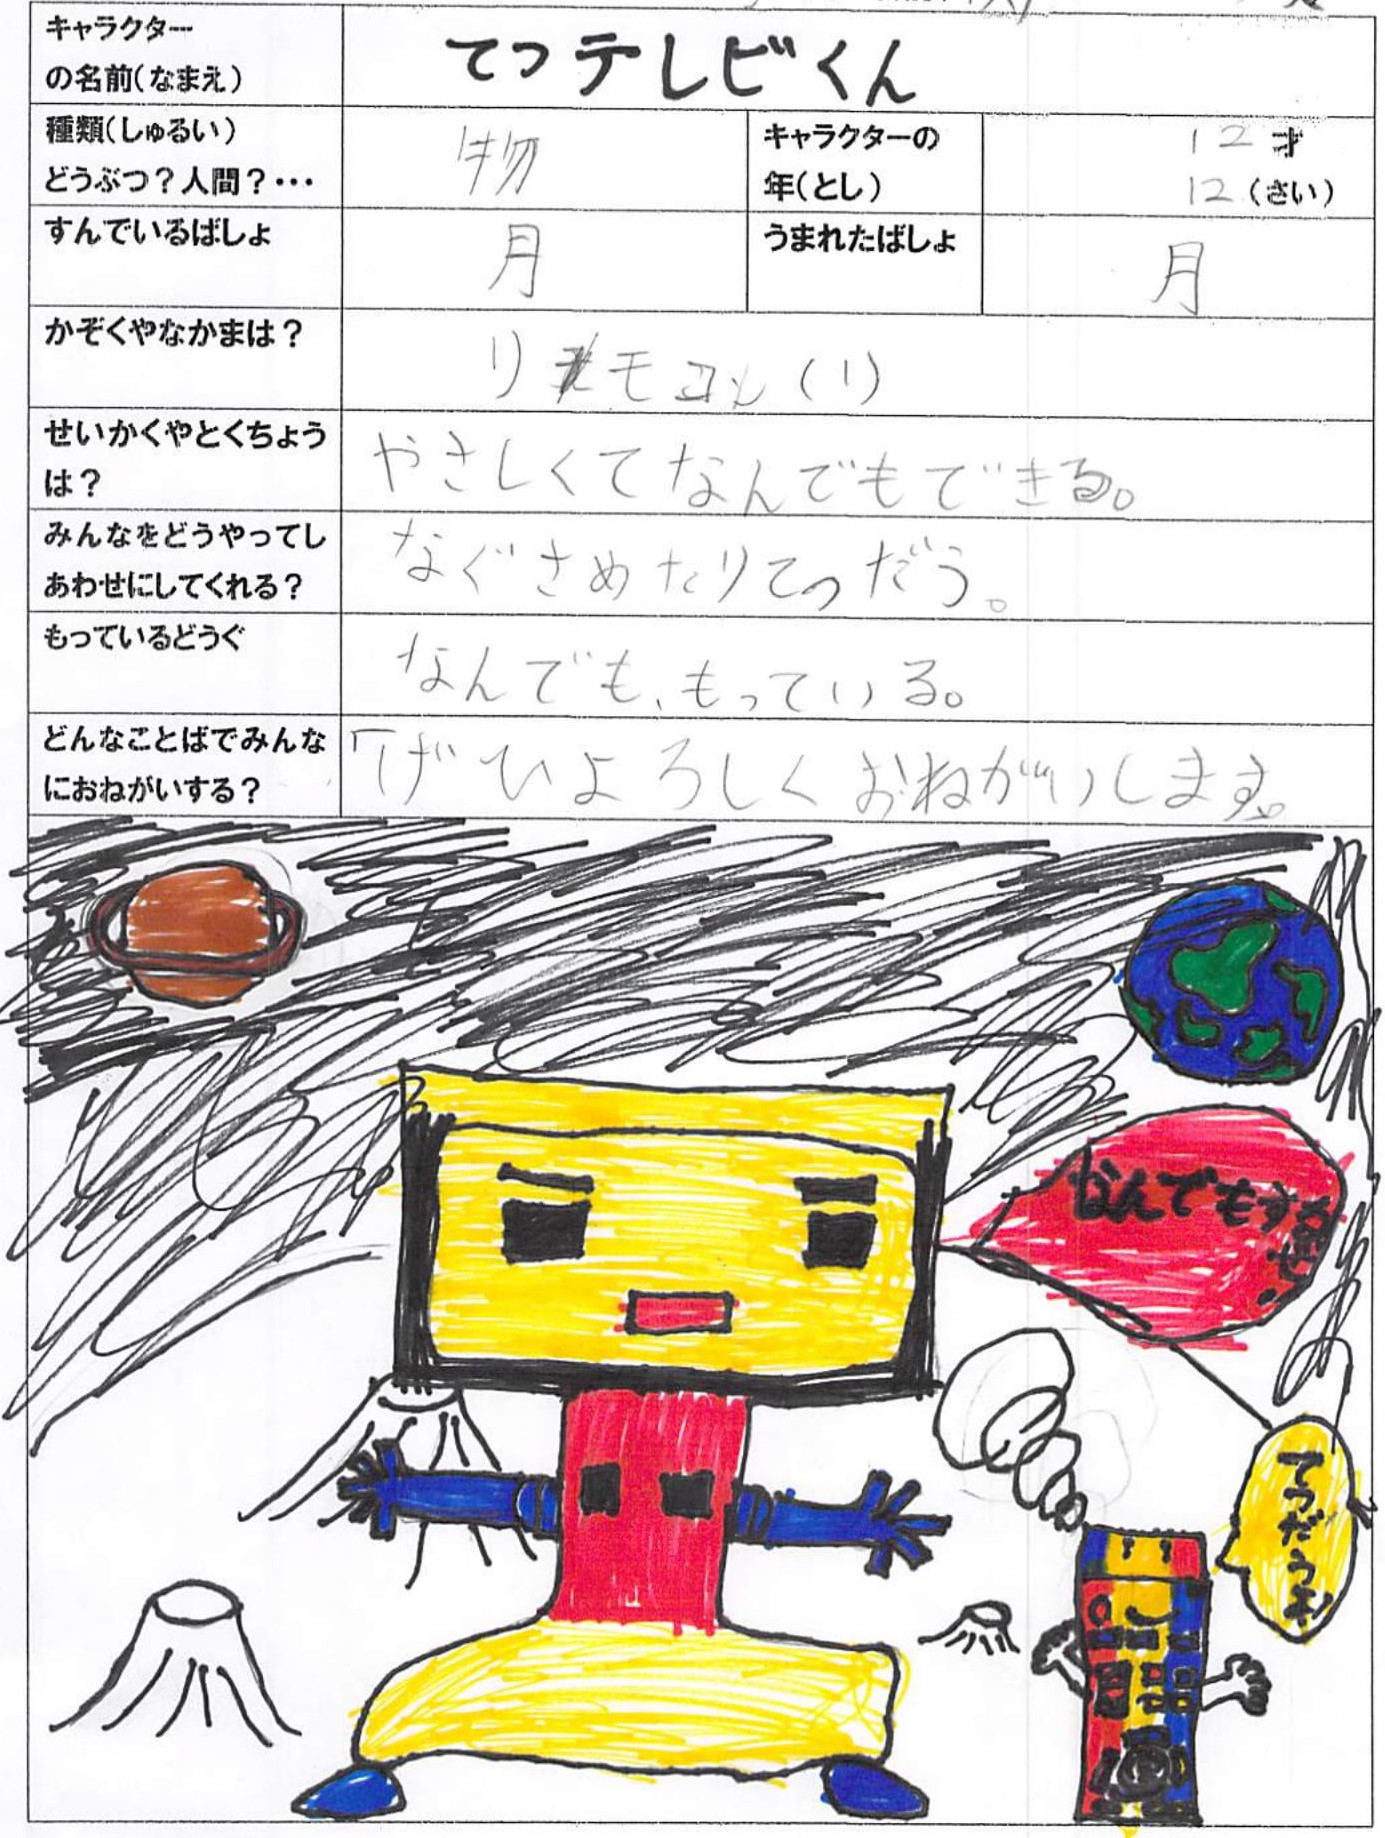 キャラクター
の名前(なまえ)
てつテレビくん
種類(しゅるい)
どうぶつ?人間?・・・
物
キャラクターの
年(とし)
12才
12(さい)
すんでいるばしょ
月
うまれたばしょ
月
かぞくやなかまは?
リモコン(1)
せいかくやとくちょう
は?
やさしくてなんでもできる。
みんなをどうやってし
あわせにしてくれる?
なぐさめたりてつだう。
もっているどうぐ
なんでも、もっている。
どんなことばでみんな
におねがいする?
「ぜひよろしくおねがいします。
なんでもする
てつだうよ